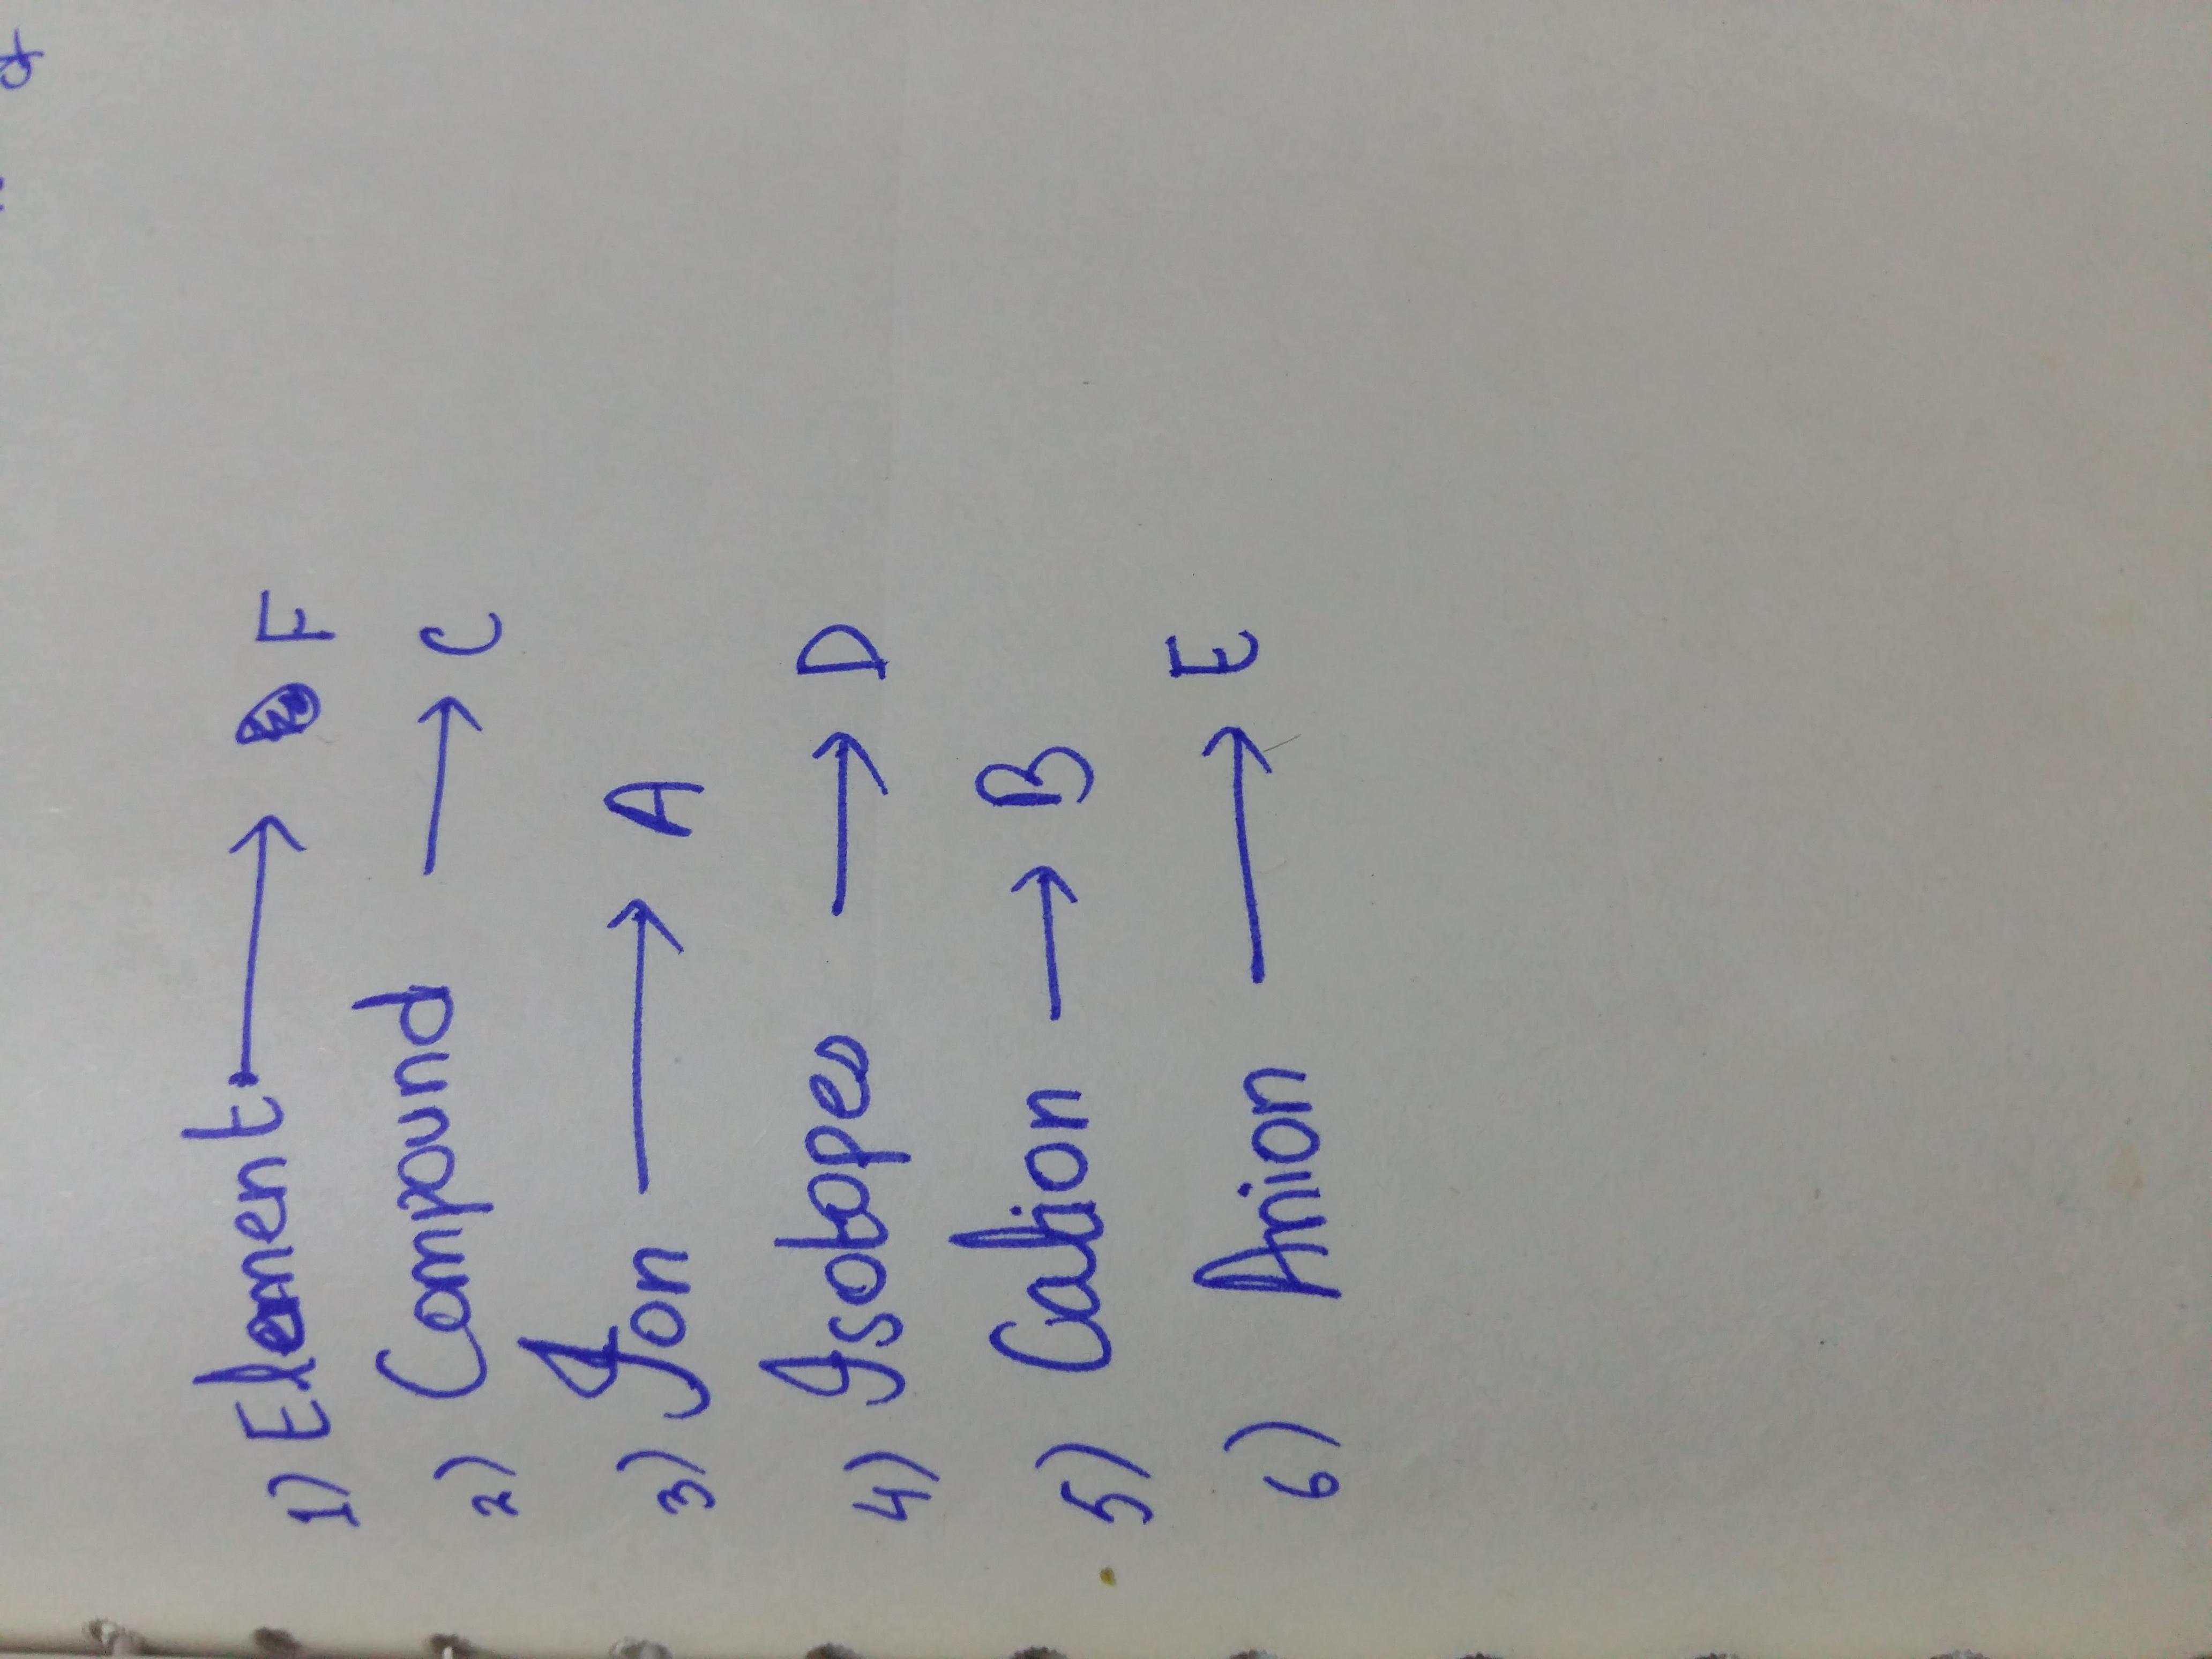 1) Element → F
2) Compound → C
3) Ion → A
4) Isotopes → D
5) Cation → B
6) Anion → E